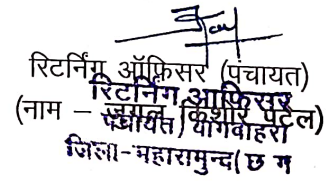 रिटर्निंग ऑफिसर (पंचायत)
रिटर्निंग आफिसर
(नाम – जुगल किशोर पटेल)
पंचायत) बागबाहरा
जिला-महासमुन्द(छ ग